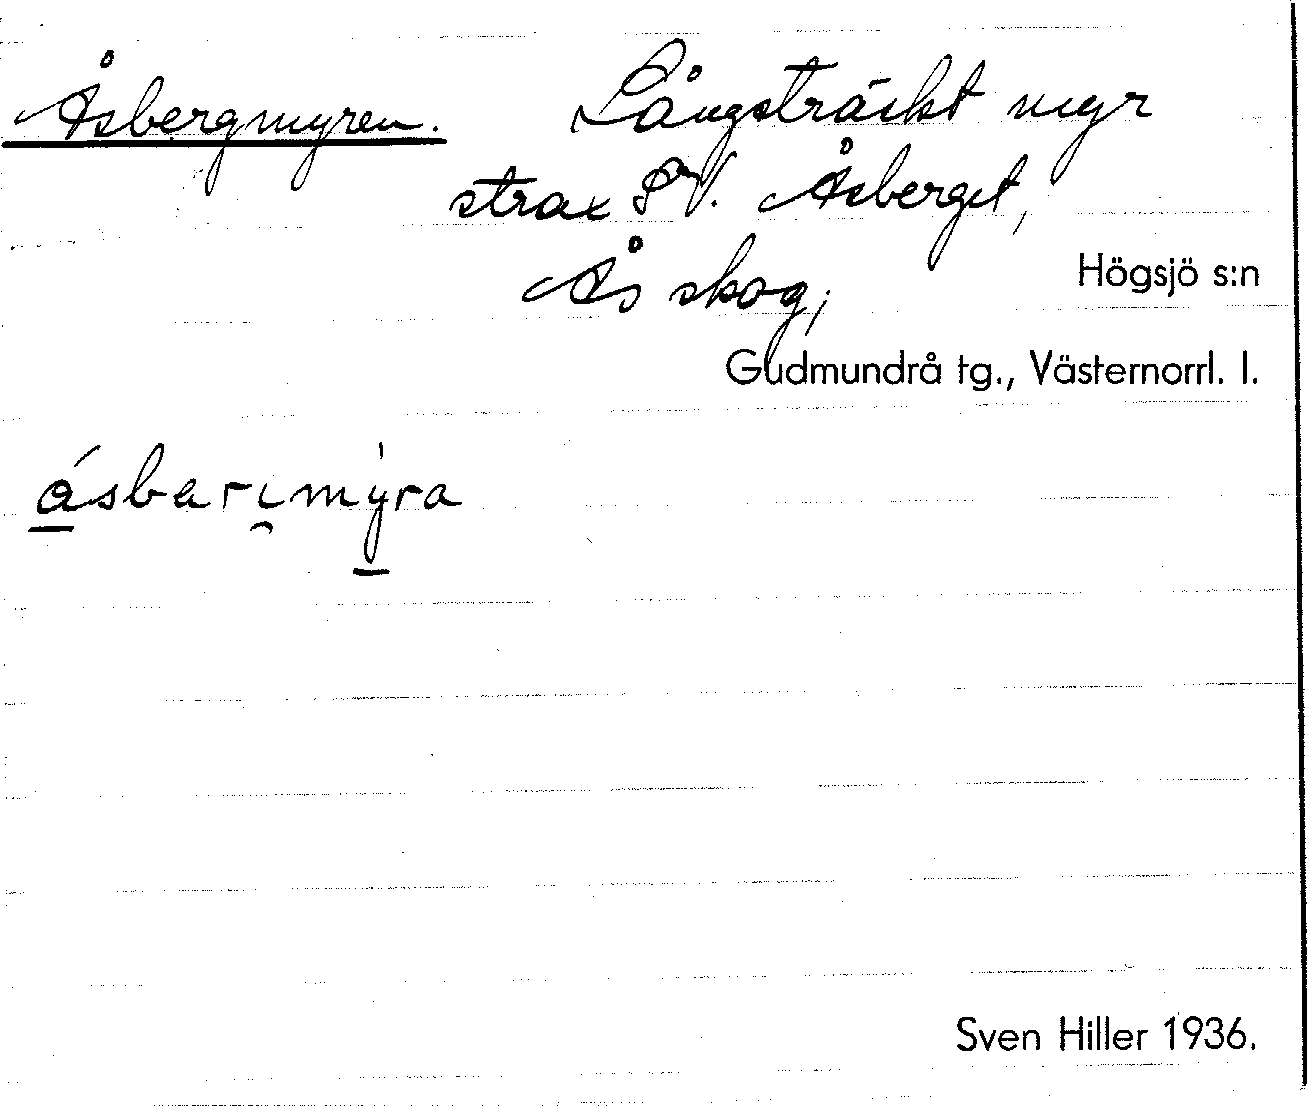 Åsbergmyren. Långsträckt myr
strax SV. Åsberget,
Ås skog,
Högsjö s:n
Gudmundrå tg., Västernorrl. l.
ásbarımýra
Sven Hiller 1936.